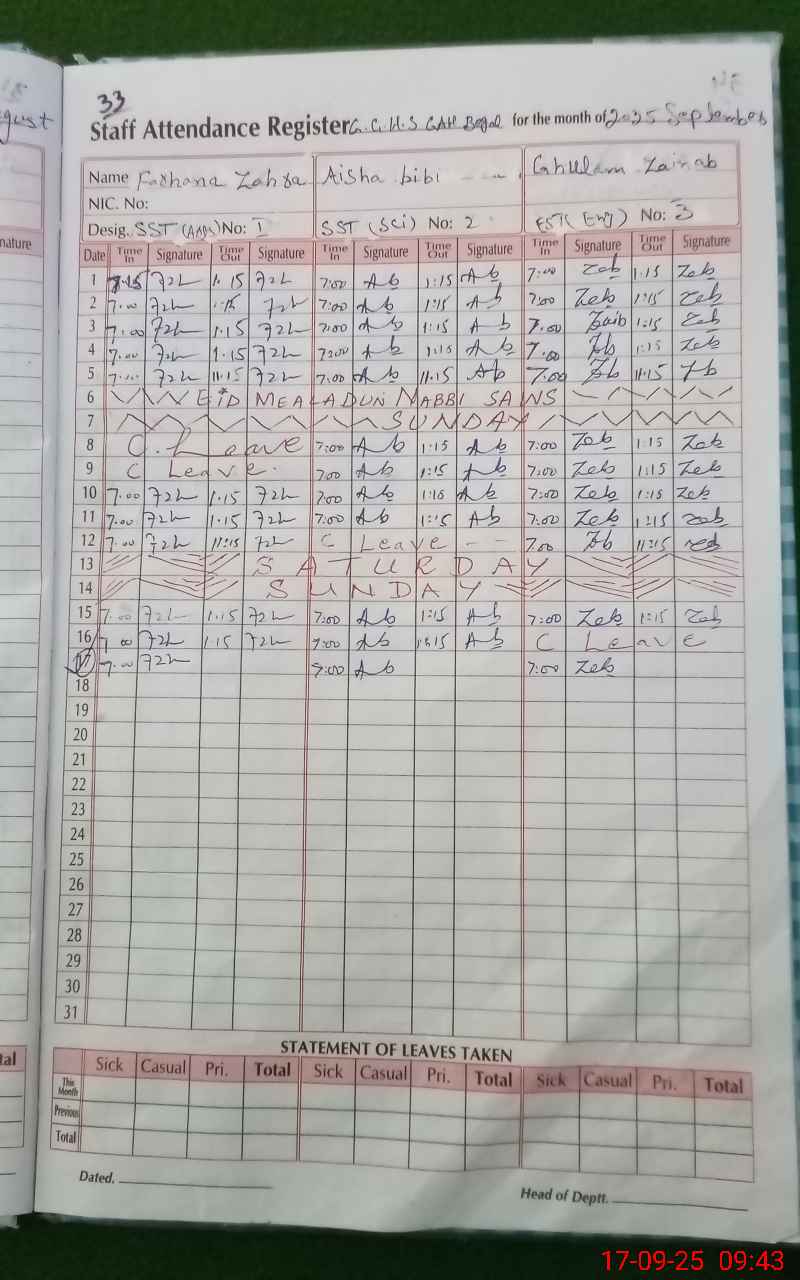 33
Staff Attendance Register G.G.H.S GAH Begal for the month of 2025 September
Name Farhana Zahra Aisha bibi Ghulam Zainab
NIC. No:
Desig. SST (Arts) No: 1 SST (Sci) No: 2 EST (Eng) No: 3
Date Time In Signature Time Out Signature Time In Signature Time Out Signature Time In Signature Time Out Signature
1 7.15 1.15 7:00 Ab 1:15 Ab 7:00 Zeb 1.15 Zeb
2 7.00 1.15 7:00 Ab 1:15 Ab 7:00 Zeb 1:15 Zeb
3 7.00 1.15 7:00 Ab 1:15 Ab 7.00 Zaib 1:15 Zeb
4 7.00 1.15 7:00 Ab 1:15 Ab 7.00 Zb 1:15 Zeb
5 7.00 11.15 7:00 Ab 11.15 Ab 7:00 Zb 11.15 Zb
6 EID MEALADUN NABBI SAWS
7 SUNDAY
8 C. Leave 7:00 Ab 1:15 Ab 7:00 Zeb 1:15 Zeb
9 C Leave. 7:00 Ab 1:15 Ab 7:00 Zeb 1:15 Zeb
10 7.00 1.15 7:00 Ab 1:15 Ab 7:00 Zeb 1:15 Zeb
11 7.00 1.15 7:00 Ab 1:15 Ab 7:00 Zeb 1:15 Zeb
12 7.00 11:15 C Leave 7.00 Zb 11:15
13 SATURDAY
14 SUNDAY
15 7.00 1.15 7:00 Ab 1:15 Ab 7:00 Zeb 1:15 Zeb
16 7.00 1.15 7:00 Ab 1:15 Ab C Leave
17 7.00 7:00 Ab 7:00 Zeb
18
19
20
21
22
23
24
25
26
27
28
29
30
31
STATEMENT OF LEAVES TAKEN
Sick Casual Pri. Total Sick Casual Pri. Total Sick Casual Pri. Total
This Month
Previous
Total
Dated.
Head of Deptt.
17-09-25 09:43